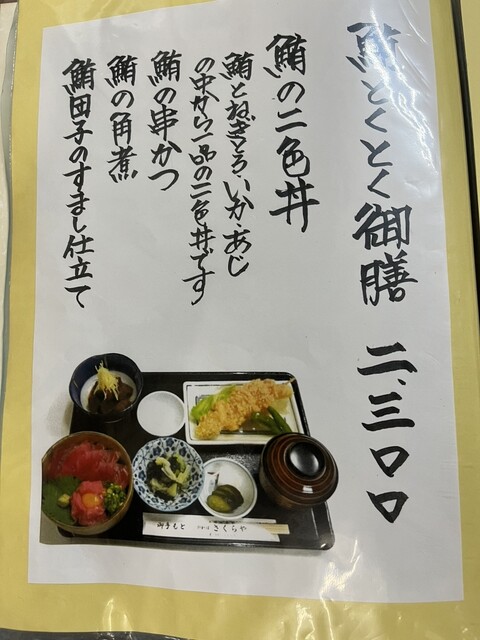 鮪とくとく御膳 二、三〇〇
鮪の二色丼
鮪とねぎとろ・いか・あじ
の中から一品の二色丼です
鮪の串かつ
鮪の角煮
鮪団子のすまし仕立て
御手もと
さくらや